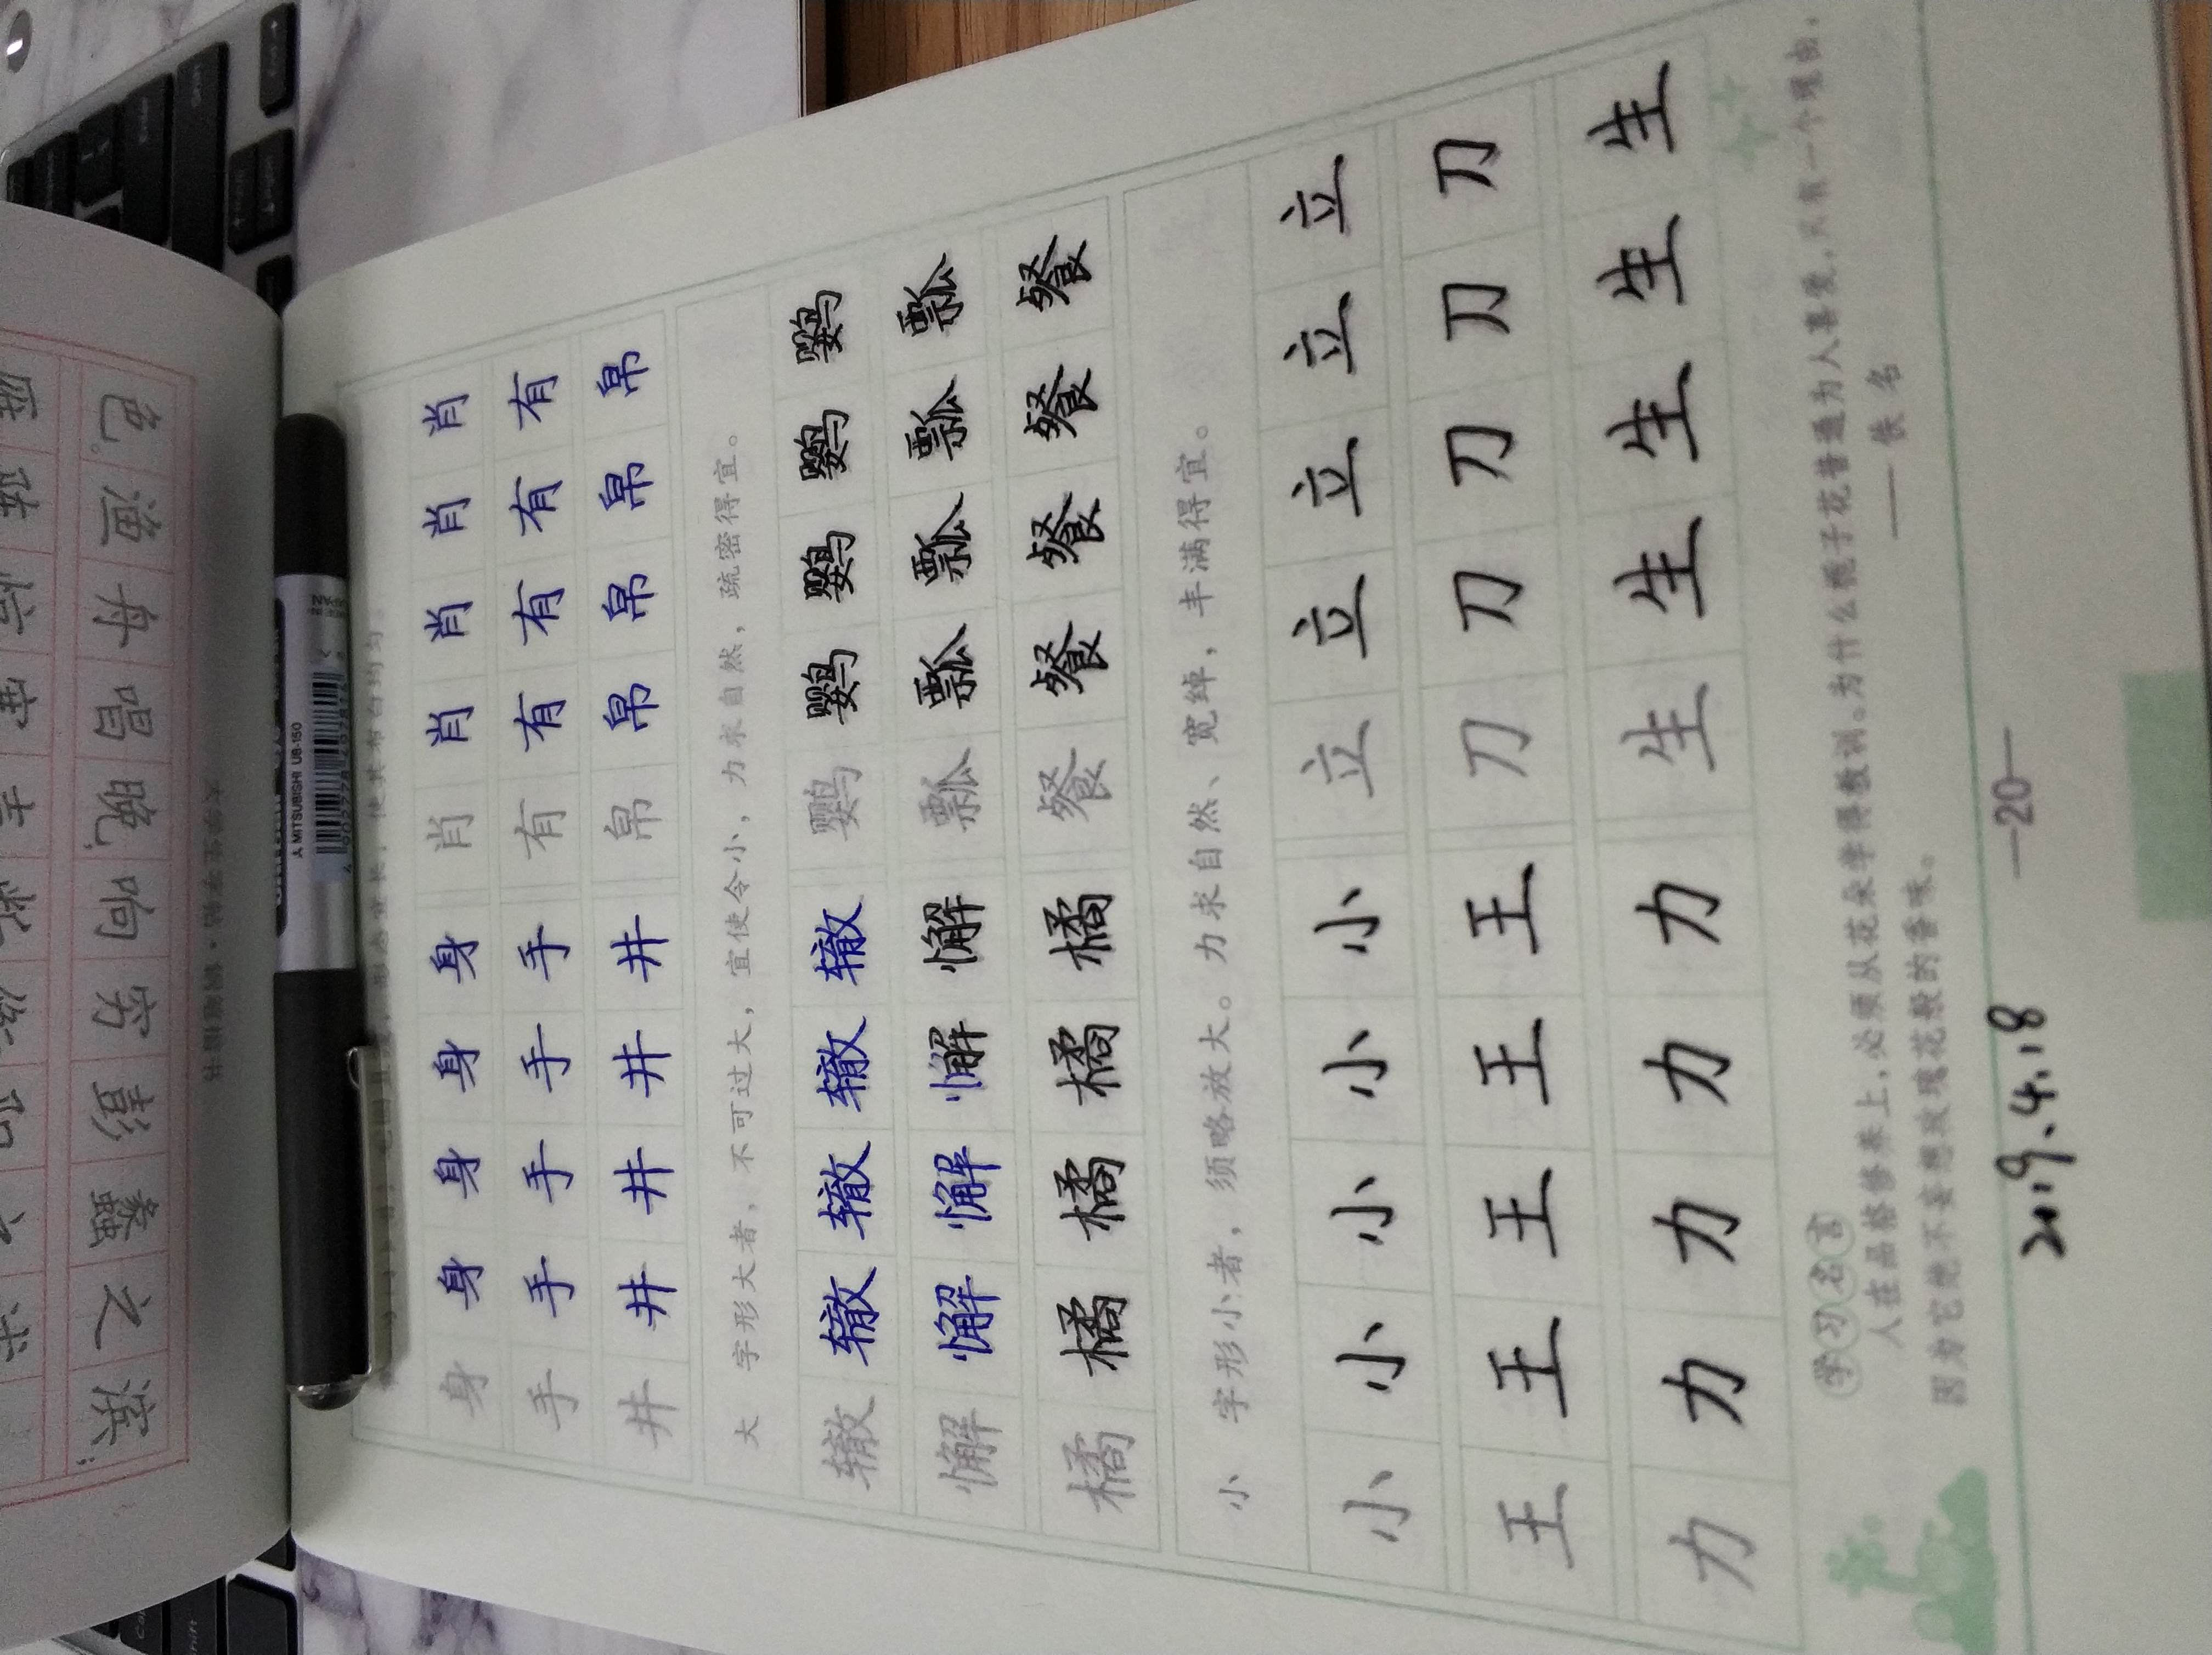 色。渔舟唱晚，响穷彭蠡之滨；
大学生字帖·钢笔楷书
MITSUBISHI UB-150
形态宜长，使其布白均匀。
身 身 身 身 身 肖 肖 肖 肖 肖
手 手 手 手 手 有 有 有 有 有
井 井 井 井 井 帛 帛 帛 帛 帛
大 字形大者，不可过大，宜使令小，力求自然，疏密得宜。
辙 辙 辙 辙 辙 鹦 鹦 鹦 鹦 鹦
懈 懈 懈 懈 懈 瓢 瓢 瓢 瓢 瓢
橘 橘 橘 橘 橘 餐 餐 餐 餐 餐
小 字形小者，须略放大。力求自然、宽绰，丰满得宜。
小 小 小 小 小 立 立 立 立 立
王 王 王 王 王 刀 刀 刀 刀 刀
力 力 力 力 力 生 生 生 生 生
学习名言
人在品格修养上，必须从花朵学得教训。为什么栀子花普遍为人喜爱，只有一个理由，
因为它绝不妄想玫瑰花般的香味。
——佚名
—20—
2019.4.18